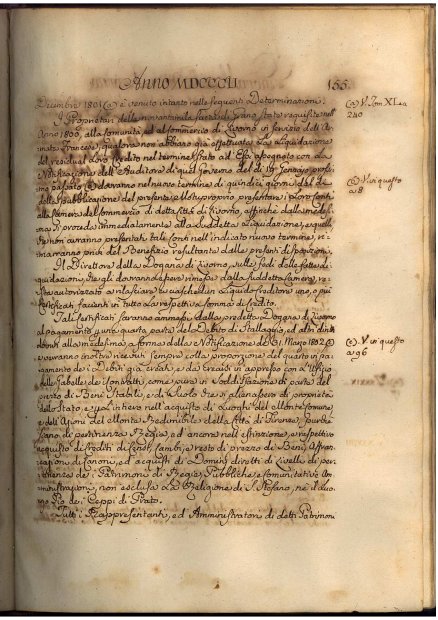 Anno MDCCCII 155.
Dicembre 1801 (a) è venuto intanto nelle seguenti Determinazioni.
I Proprietari delle sacca di Grano state requisite nell'
Anno 1800, alla Comunità, ed al Commercio di Livorno in servizio dell'Ar-
mata Francese, qualora non abbiano già effettuata la liquidazione
del residual loro credito nel termine stato ad Essi assegnato con la
Notificazione dell'Auditore di quel Governo del dì 19 Gennajo prossi-
mo passato (b) dovranno nel nuovo termine di quindici giorni dal dì
della pubblicazione del presente Motuproprio presentare i loro Conti
alla Camera del Commercio di detta Città di Livorno, affinchè dalla medesi-
ma si proceda immediatamente alla suddetta liquidazione, e quelli
che non avranno presentati tali Conti nell'indicato nuovo termine ri-
marranno privi del Benefizio resultante dalle presenti disposizioni.
Il Direttore della Dogana di Livorno, sulle fedi delle fatte li-
quidazioni, che gli dovranno essere rimesse dalla suddetta Camera, re-
sta autorizzato a rilasciare a ciascheduno Liquido Creditore uno, o più
Certificati facienti in tutto la respettiva somma di credito.
Tali Certificati saranno ammessi dalla predetta Dogana di Livorno
al pagamento di una quarta parte del Debito di Stallaggio, ed altri diritti
dovuti alla medesima a forma della Notificazione de' 31 Marzo 1802 (c)
e verranno inoltre ricevuti sempre colla proporzione del quarto in pa-
gamento de' Debiti già creati, e da crearsi in appresso con l'Ufizio
delle Gabelle dei Contratti, come pure in soddisfazione di parte del
prezzo di Beni Stabili, e di Suolo che si alienassero di proprietà
dello Stato, e per l'intiero nell'acquisto di Luoghi del Monte Comune,
e dell'Azioni del Monte Redimibile della Città di Firenze, purchè
siano di pertinenza Regia, ed ancora nell'estinzione, e respettivo
acquisto di crediti di Censi, Cambi, e resto di prezzo di Beni, Affran-
cazioni di Canoni, ed acquisti di Dominj diretti di Livelli di per-
tinenza dei Patrimonj di Regie, Pubbliche, e Comunitative Am-
ministrazioni, non esclusa la Religione di S. Stefano, nè il Luo-
go Pio dei Ceppi di Prato.
Tutti i Rappresentanti, ed Amministratori di detti Patrimonj
(a) V. Tom. XL. a
240
(b) V. in questo
a 8
(c) V. in questo
a 96